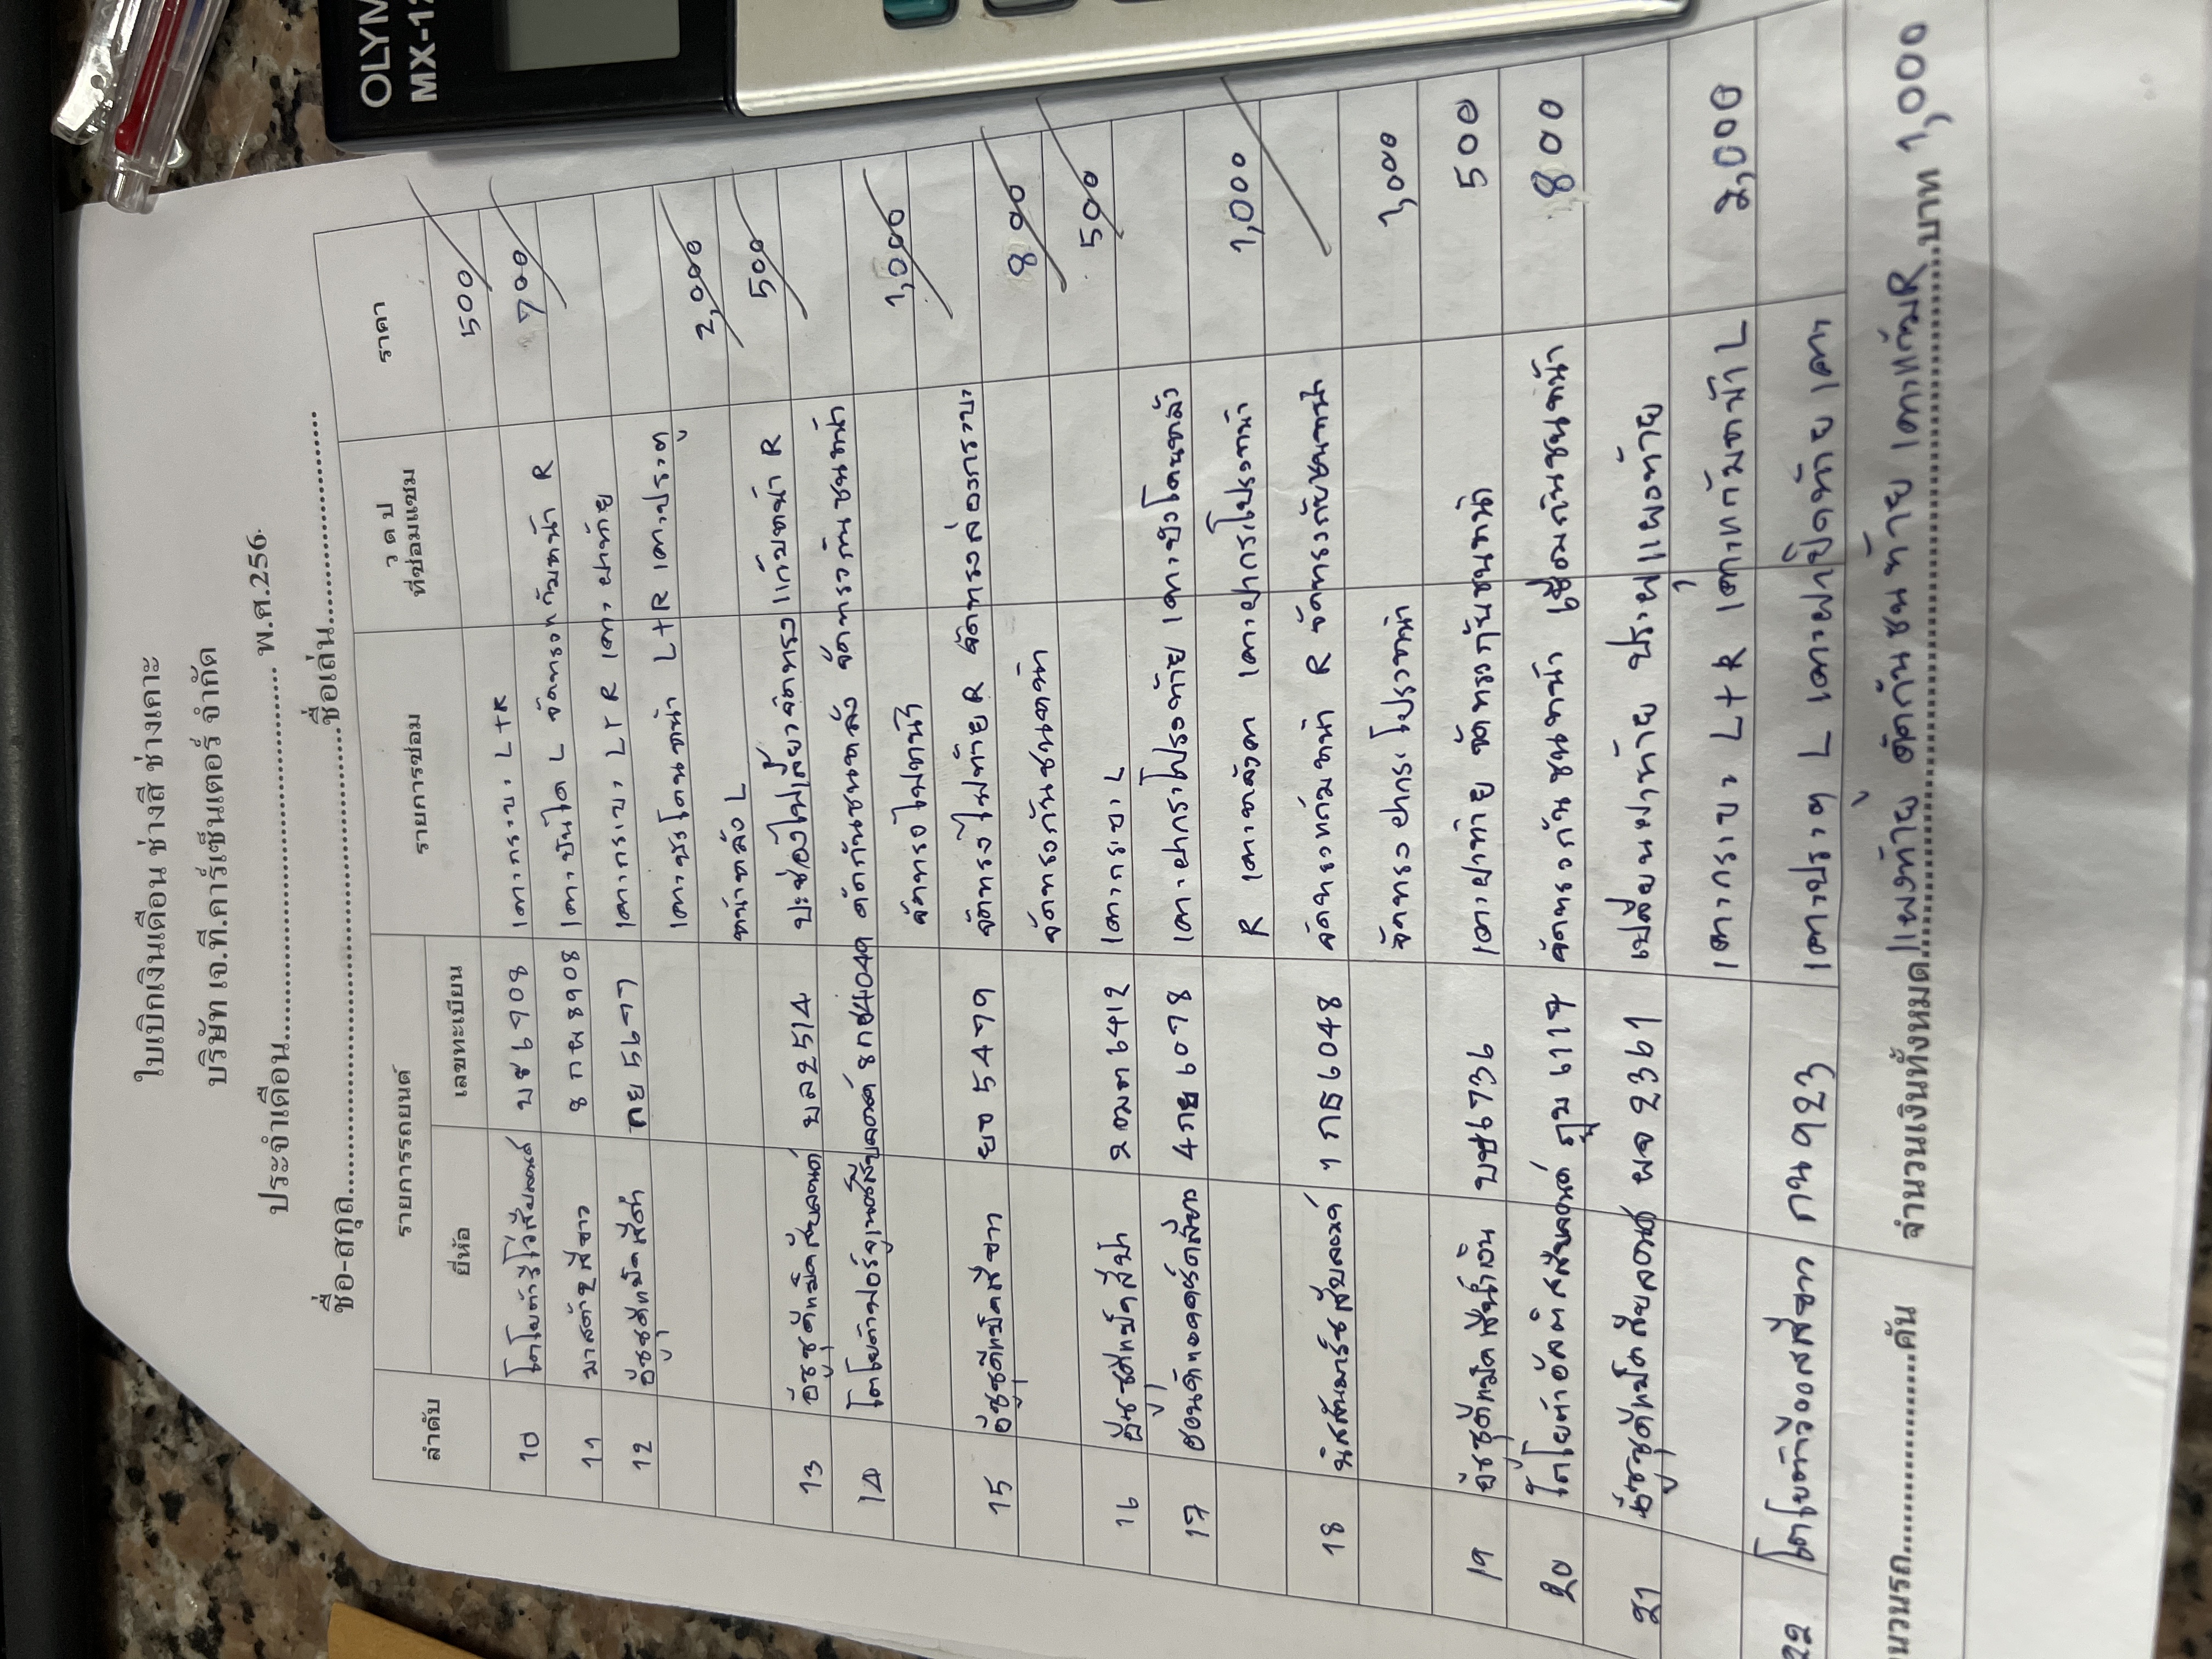 OLYM
MX-12
ใบเบิกเงินเดือน ช่างสี ช่างเคาะ
บริษัท เจ.ที.คาร์เซ็นเตอร์ จำกัด
ประจำเดือน.................................................. พ.ศ.256.
ชื่อ-สกุล..................................................ชื่อเล่น..............................
ลำดับ รายการรถยนต์ รายการซ่อม ว ด ป ที่ซ่อมแซม ราคา
ยี่ห้อ เลขทะเบียน
10 บช 6908 เคาะกระบะ L+R 500
11 มาสด้า2สีขาว 8 กผ 8908 เคาะบันได L จัดทรงแก้มหน้า R 700
12 อีซูซุดีแม็คสีดำ 5677 เคาะกระบะ L+R เคาะฝาท้าย
เคาะซุ้มโคนหน้า L+R เคาะประตู
หน้าหลัง L 2,000
13 อีซูซุดีแม็คสีบลอนด์ บล2514 ปะช่องไฟเลี้ยวจัดทรงแก้มหน้า R 500
14 ดัดกันชนหลัง จัดทรงกันชนหน้า
จัดทรงไฟหน้า 1,000
15 อีซูซุดีแม็คสีขาว ยจ 5479 จัดทรงไฟท้าย R จัดทรงล่องกระบะ
จัดทรงกันชนหน้า 800
16 อีซูซุดีแม็คสีฟ้า 2ฒฅ6412 เคาะกระบะ L 500
17 6078 เคาะฝากระโปรงท้าย
R เคาะหลังคา เคาะฝากระโปรงหน้า 1,000
18 นิสสันมาร์ชสีบลอนด์ 1 กธ 6048 จัดทรงแก้มหน้า R จัดทรงกันชนหน้า
จัดทรงฝากระโปรงหน้า 1,000
19 อีซูซุดีแม็คสีน้ำเงิน บช6736 เคาะฝาท้าย จัดทรงกันชนหน้า 500
20 โตโยต้าอัลติสสีบลอนด์ 6117 จัดทรงกันชนหน้า เชื่อมกันชนหน้า 800
21 อีซูซุดีแม็คสีบลอนด์ ผจ 2361 เปลี่ยนฝาท้าย ปะผุแผงท้าย
เคาะกระบะ L+R เคาะแก้มหน้า L 2,000
22 โตโยต้าวีออสสีขาว กน 923 เคาะประตู L เคาะฝาปิดท้าย เคาะ
แผงท้าย ดัดกันชนท้าย เคาะแก้มR 1,000
นวนรถ..............................คัน จำนวนเงินทั้งหมด..................................................บาท